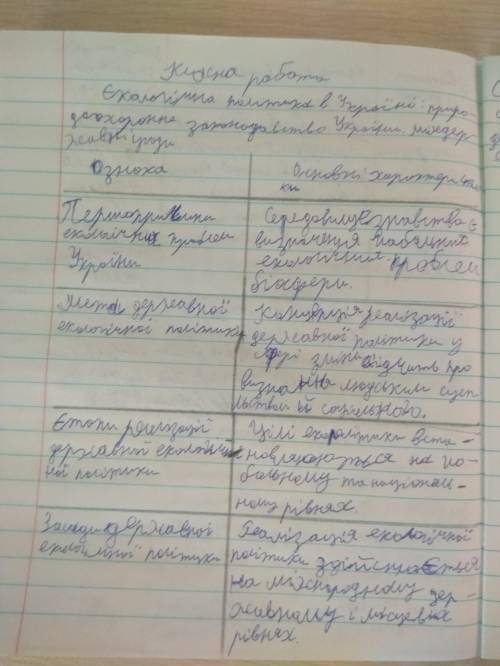 Класна робота
Екологічна політика в Україні: приро
доохоронне законодавство України. міждер
жавні угоди
Ознака
Основні характеристи
ки
Першопричина
екологічних проблем
України
Середовищезнавства є
визначення
екологічних проблем
біосфери.
Мета державної
екологічної політики
Концепція реалізації
державної політики у
сфері зміни свідчить про
визнання людським суспі
льством й соціального.
Етапи реалізації
державної екологіч
ної політики
Цілі екополітики вста-
новлюються на гло-
бальному та націонал-
ному рівнях.
Засади державної
екологічної політики
Реалізація екологічної
політики здійснюється
на міжнародному дер-
жавному і місцевих
рівнях.